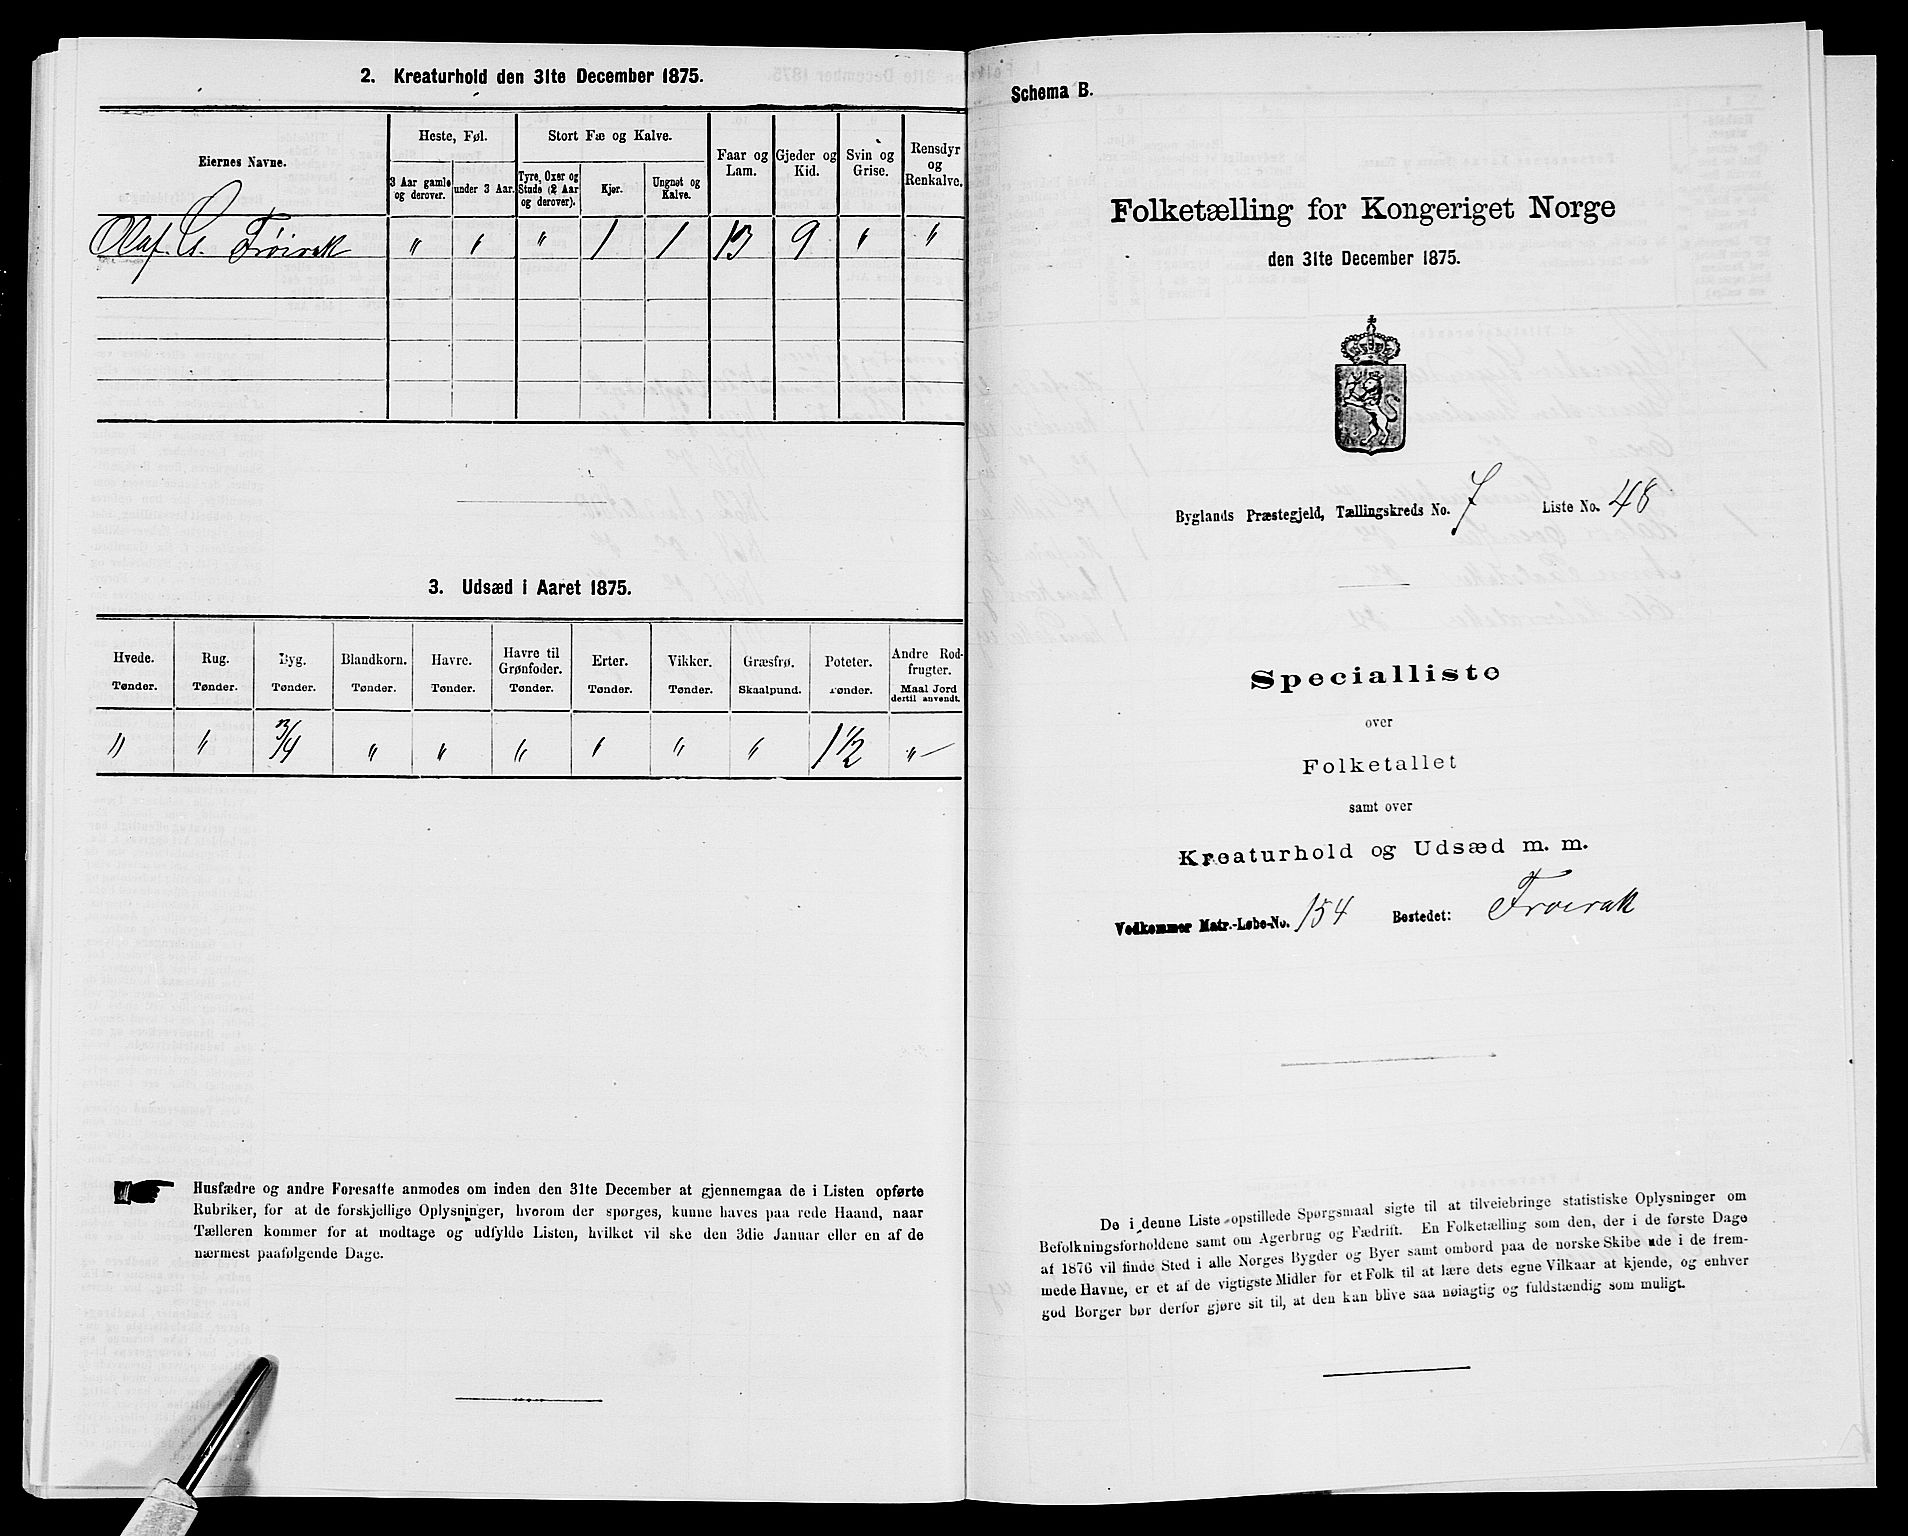 2. Kreaturhold den 31te December 1875.
Eiernes Navne.
Heste, Føl.
3 Aar gamle og derover.
under 3 Aar.
Stort Fæ og Kalve.
Tyre, Oxer og Stude (2 Aar og derover).
Kjør.
Ungnøt og Kalve.
Faar og Lam.
Gjeder og Kid.
Svin og Grise.
Rensdyr og Renkalve.
Olaf G. Frøirak " " " 1 1 13 9 " "
3. Udsæd i Aaret 1875.
Hvede. Rug. Byg. Blandkorn. Havre. Havre til Grønfoder. Erter. Vikker. Græsfrø. Poteter. Andre Rodfrugter.
Tønder. Tønder. Tønder. Tønder. Tønder. Tønder. Tønder. Tønder. Skaalpund. Tønder. Maal Jord dertil anvendt.
" " 3/4 " " " " " " 1 1/2 "
Husfædre og andre Foresatte anmodes om inden den 31te December at gjennemgaa de i Listen opførte
Rubriker, for at de forskjellige Oplysninger, hvorom der spørges, kunne haves paa rede Haand, naar
Tælleren kommer for at modtage og udfylde Listen, hvilket vil ske den 3die Januar eller en af de
nærmest paafølgende Dage.
Schema B.
Folketælling for Kongeriget Norge
den 31te December 1875.
Byglands Præstegjeld, Tællingskreds No. 7 Liste No. 48
Specialliste
over
Folketallet
samt over
Kreaturhold og Udsæd m. m.
Vedkommer Matr.-Løbe-No. 154 Bostedet: Froirak
De i denne Liste opstillede Spørgsmaal sigte til at tilveiebringe statistiske Oplysninger om
Befolkningsforholdene samt om Agerbrug og Fædrift. En Folketælling som den, der i de første Dage
af 1876 vil finde Sted i alle Norges Bygder og Byer samt ombord paa de norske Skibe ude i de frem-
mede Havne, er et af de vigtigste Midler for et Folk til at lære dets egne Vilkaar at kjende, og enhver
god Borger bør derfor gjøre sit til, at den kan blive saa nøiagtig og fuldstændig som muligt.